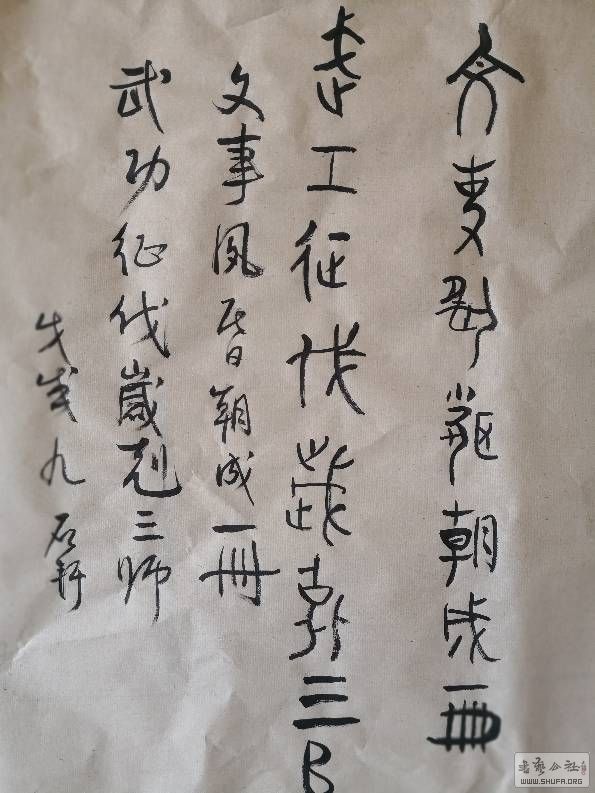 文事夙昏朝成一冊
武工征伐歲克三𠂤
文事夙昏朝成一冊
武功征伐歲剋三师
戊戌九石轩
书艺公社
WWW.SHUFA.ORG